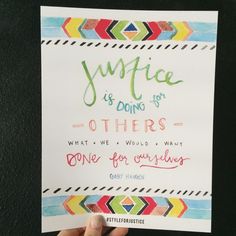 justice
is DOING for
OTHERS
WHAT • WE • WOULD • WANT
DONE for ourselves
GARY HAUGEN
#STYLEFORJUSTICE